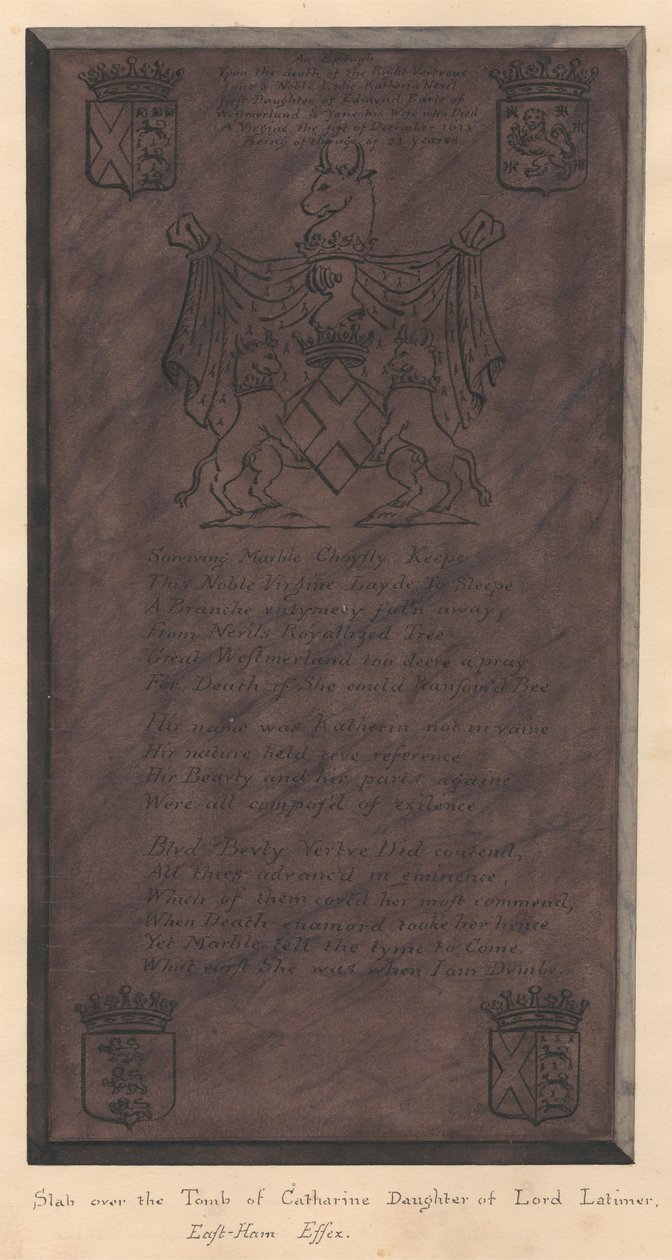 An Epitaph
Vpon the death of the Right Vertvous
Faire & Noble Ladie Katherin Nevil
first Daughter of Edmvnd Earle of
Westmerland & Jane his Wife who Died
A Virgine the first of December 1613
Being of the age of 23 yeares
Surviving Marble Choysly Keepe
This Noble Virgine Layde To Sleepe
A Branche vntymeey fal'n away,
From Nevils Royallized Tree
Great Westmerland too deere a pray
For Death if She could Ransom'd Bee
Hir name was Katherin not in vaine
Hir nature held reference
Hir Beavty and hir parts againe
Were all compos'd of exilence
Blvd Bevty Vertve Did contend,
All thies advanc'd in eminence,
Which of them covld her most commend,
When Death enamord tooke her hence
Yet Marble tell the tyme to Come
What She was when I am Dvmbe.
Slab over the Tomb of Catharine Daughter of Lord Latimer,
East-Ham Essex.